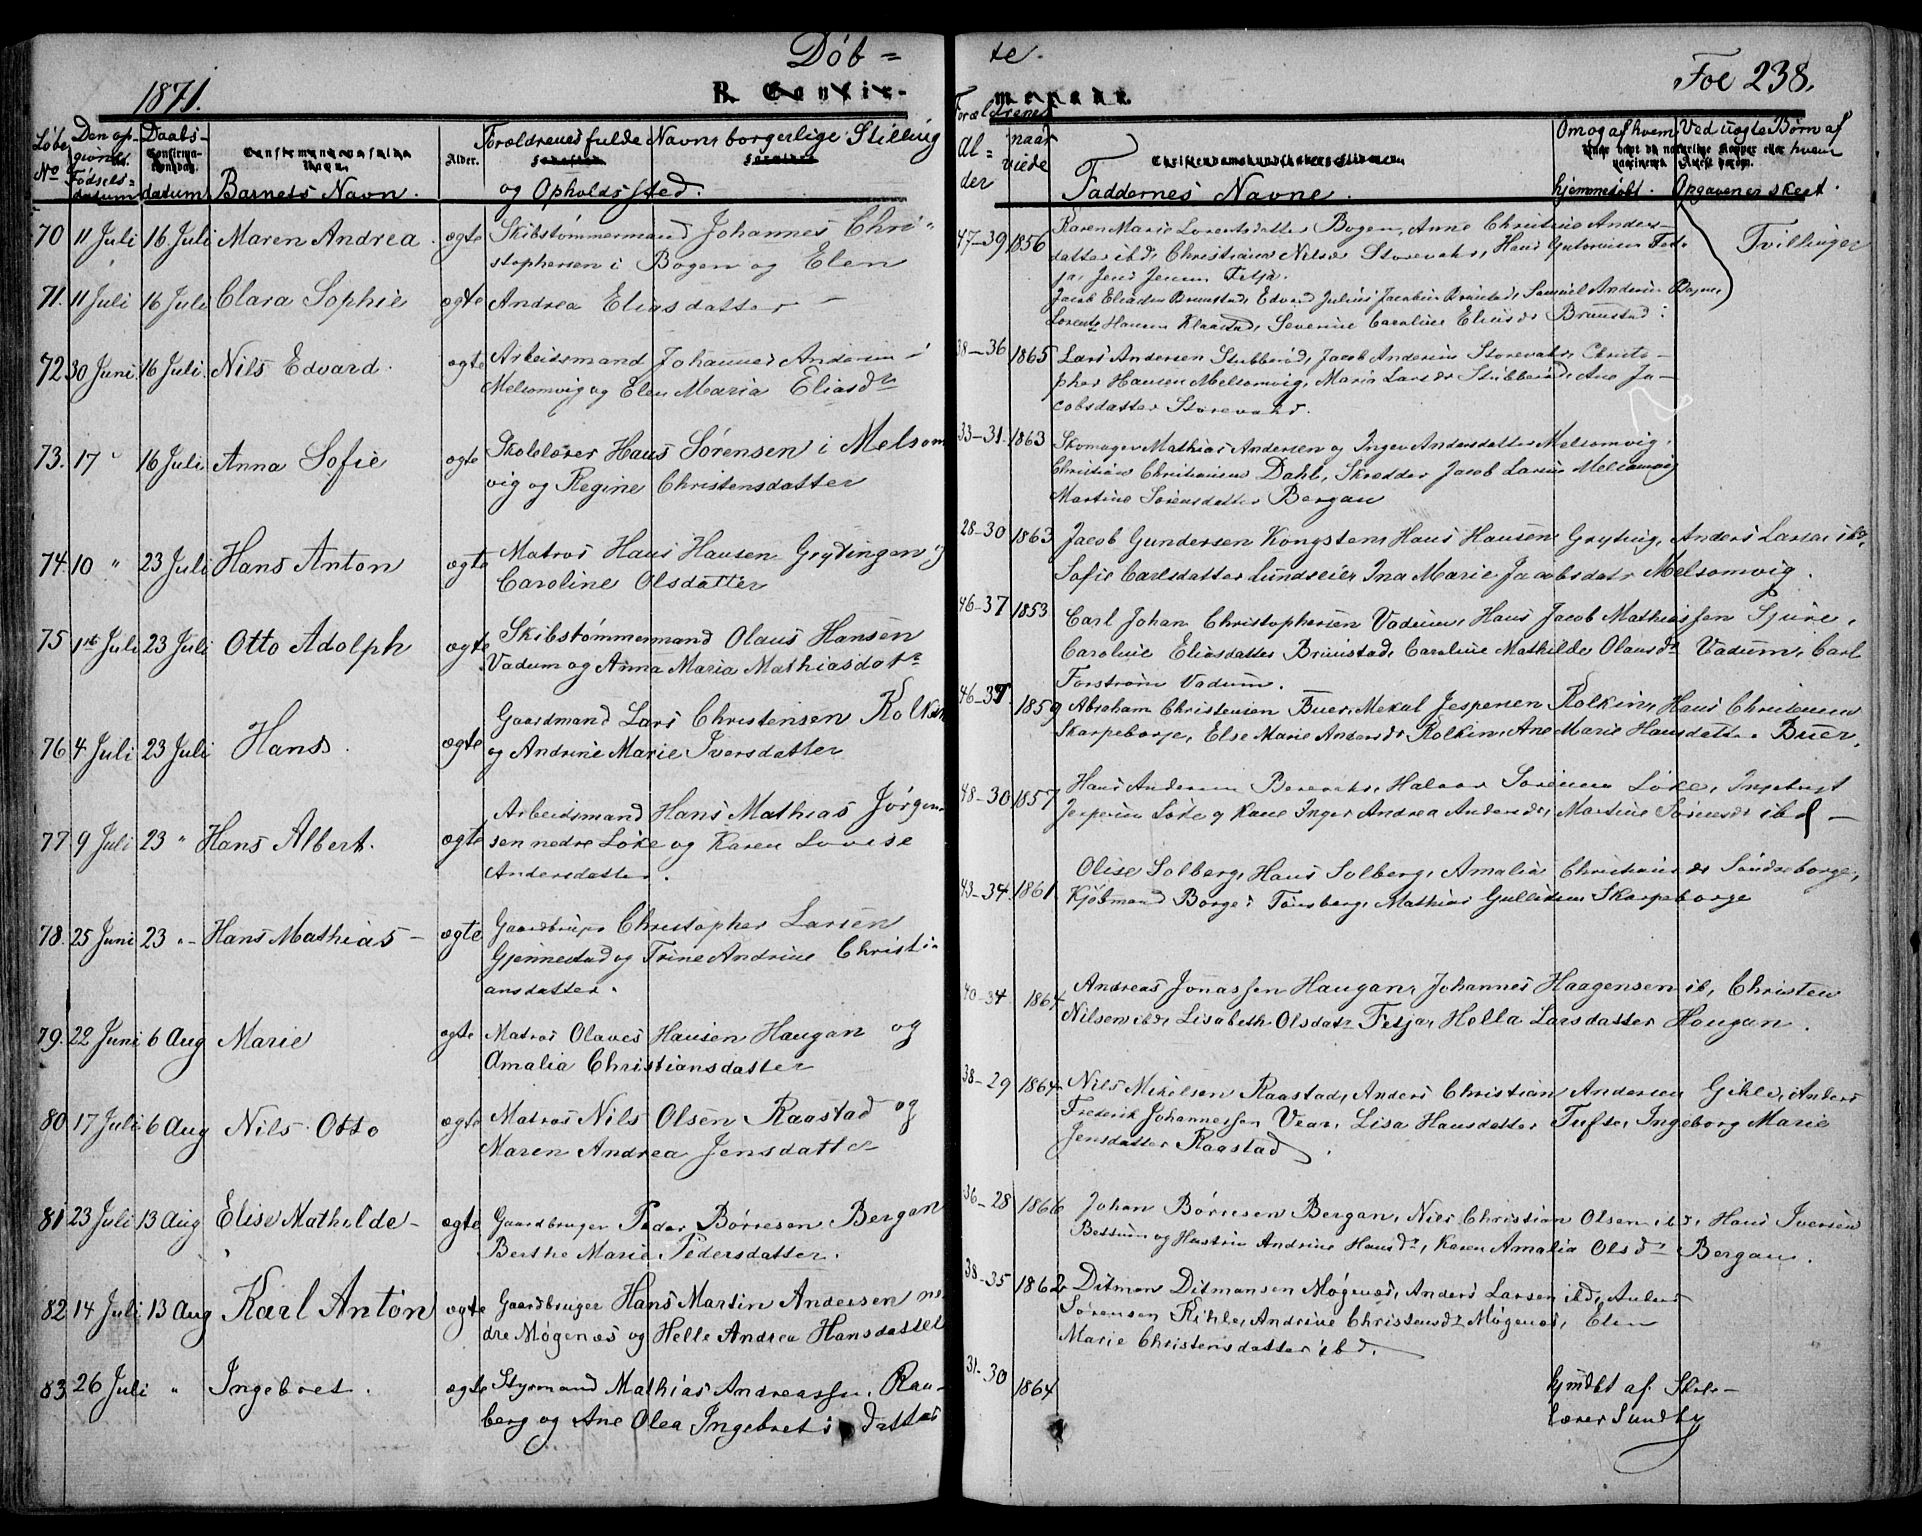 Döb = te.
1871.
B. Confir- merede.
Foe 238.
Løbe No
Den opgivne Fødselsdatum
Daabsdatum
Barnets Navn.
Alder.
Forældrenes fulde Navn borgerlige Stilling
og Opholdssted.
Forældrenes
Alder
naar viede
Faddernes Navne.
Om og af hvem
hjemmedöbt.
Ved uægte Børn af hvem
Opgaven er skeet.
70 11 Juli 16 Juli Maren Andrea ægte Skibstømmermand Johannes Chri-
stophersen i Bogen og Elen
47-39 1856 Karen Marie Lorentsdatter Bogen, Anne Christine Anders-
datter ibd, Christian Nilsen Storevahr, Hans Gulovsen Fed-
ja, Jens Jensen Fetja.
Tvillinger
71. 11 Juli 16 Juli Clara Sophie ægte Andrea Eliasdatter
Jacob Eliasen Brunstad, Edvard Julius Jacobsen Brunstad, Samuel Andersen Bogen,
Lorentz Hansen Klaastad, Severine Caroline Eliasdr Brunstad
72 30 Juni 16 Juli Nils Edvard. ægte Arbeidsmand Johannes Andersen i
Melsomvig og Elen Maria Eliasdr
38-36 1865 Lars Andersen Stubberød, Jacob Andersen Storevahr, Christo-
pher Hansen Melsomvig, Maria Larsdr Stubberød, Ane Ja-
cobsdatter Storevahr.
73. 17 " 16 Juli Anna Sofie ægte Skolelærer Hans Sørensen i Melsom
vig og Regine Christensdatter
33-31. 1863 Skomager Mathias Andersen og Inger Andersdatter Melsomvig,
Christian Christiansen Dahl, Skrædder Jacob Larsen Melsomvig
Martine Sørensdatter Bergan
74. 10 " 23 Juli Hans Anton ægte Matros Hans Hansen Grydingen og
Caroline Olsdatter
28-30 1863 Jacob Gundersen Kongsten, Hans Hansen Gryting, Anders Larsen ibd,
Sofie Carlsdatter Lundseier, Ina Marie Jacobsdatr Melsomvig.
75 1st Juli 23 Juli Otto Adolph ægte Skibstømmermand Olaus Hansen
Vadum og Anna Maria Mathiasdatr
46-37 1853 Carl Johan Christophersen Vadum, Hans Jacob Mathiassen Sjure,
Caroline Eliasdatter Brunstad, Caroline Mathilde Olausdr Vadum, Carl
Forstrøm Vadum.
76 4 Juli 23 Juli Hans. ægte Gaardmand Lars Christensen Rolken
og Andrine Marie Iversdatter
46-37 1859 Abraham Christensen Buer, Mekal Jespersen Rolkin, Hans Christensen
Skarpeborge, Else Marie Andersdr Rolkin, Ane Marie Hansdatter Buer.
77 9 Juli 23 " Hans Albert. ægte Arbeidsmand Hans Mathias Jørgen-
sen nedre Løke og Karen Lovise
Andersdatter.
48-30 1857 Hans Andersen Borevahr, Halvor Sørensen Løke, Ingebregt
Jespersen Løke og Kone Inger Andrea Andersdr, Martine Sørensdr ibd
78. 25 Juni 23 " Hans Mathias ægte Gaardbruger Christopher Larsen
Gjennestad og Trine Andrine Christi-
ansdatter.
43-34. 1861 Olise Solberg, Hans Solberg, Amalia Christiansdr Söndreborge,
Kjöbmand Borge i Tønsberg, Mathias Gulliksen Skarpeborge
79. 22 Juni 6 Aug Marie ægte Matros Olaves Hansen Haugan og
Amalia Christiansdatter
40-34 1864 Andreas Jonassen Haugan, Johannes Haagensen ib, Christen
Nilsen ibd, Lisabeth Olsdatr Fetja, Holla Larsdatter Haugan.
80. 17 Juli 6 Aug Nils Otto ægte Matros Nils Olsen Raastad og
Maren Andrea Jensdatter
38-29 1864 Nils Mikelsen Raastad, Anders Christian Andersen Gihle, Anders
Frederik Johannessen Vear, Lisa Hansdatter Tufte, Ingeborg Marie
Jensdatter Raastad.
81 23 Juli 13 Aug Elise Mathilde ægte Gaardbruger Peder Börresen Bergan
Berthe Marie Pedersdatter.
36-28 1866 Johan Börresen Bergan, Nils Christian Olsen ibd, Hans Iversen
Bettum og Hustru Andrine Hansdr, Karen Amalia Olsdr Bergan.
82 14 Juli 13 Aug Karl Anton ægte Gaardbruger Hans Martin Andersen ne-
dre Møgenæs og Helle Andrea Hansdatter
38-35 1862 Ditman Ditmansen Møgenæs, Anders Larsen ibd, Anders
Sørensen Kihle, Andrine Christensdr Møgenæs, Elen
Marie Christensdatter ibd.
83 26 Juli " Ingebret. ægte Styrmand Mathias Andreassen Rau-
berg og Ane Olea Ingebretsdatter
31-30 1864 hjmdbt af Skole-
lærer Sundby